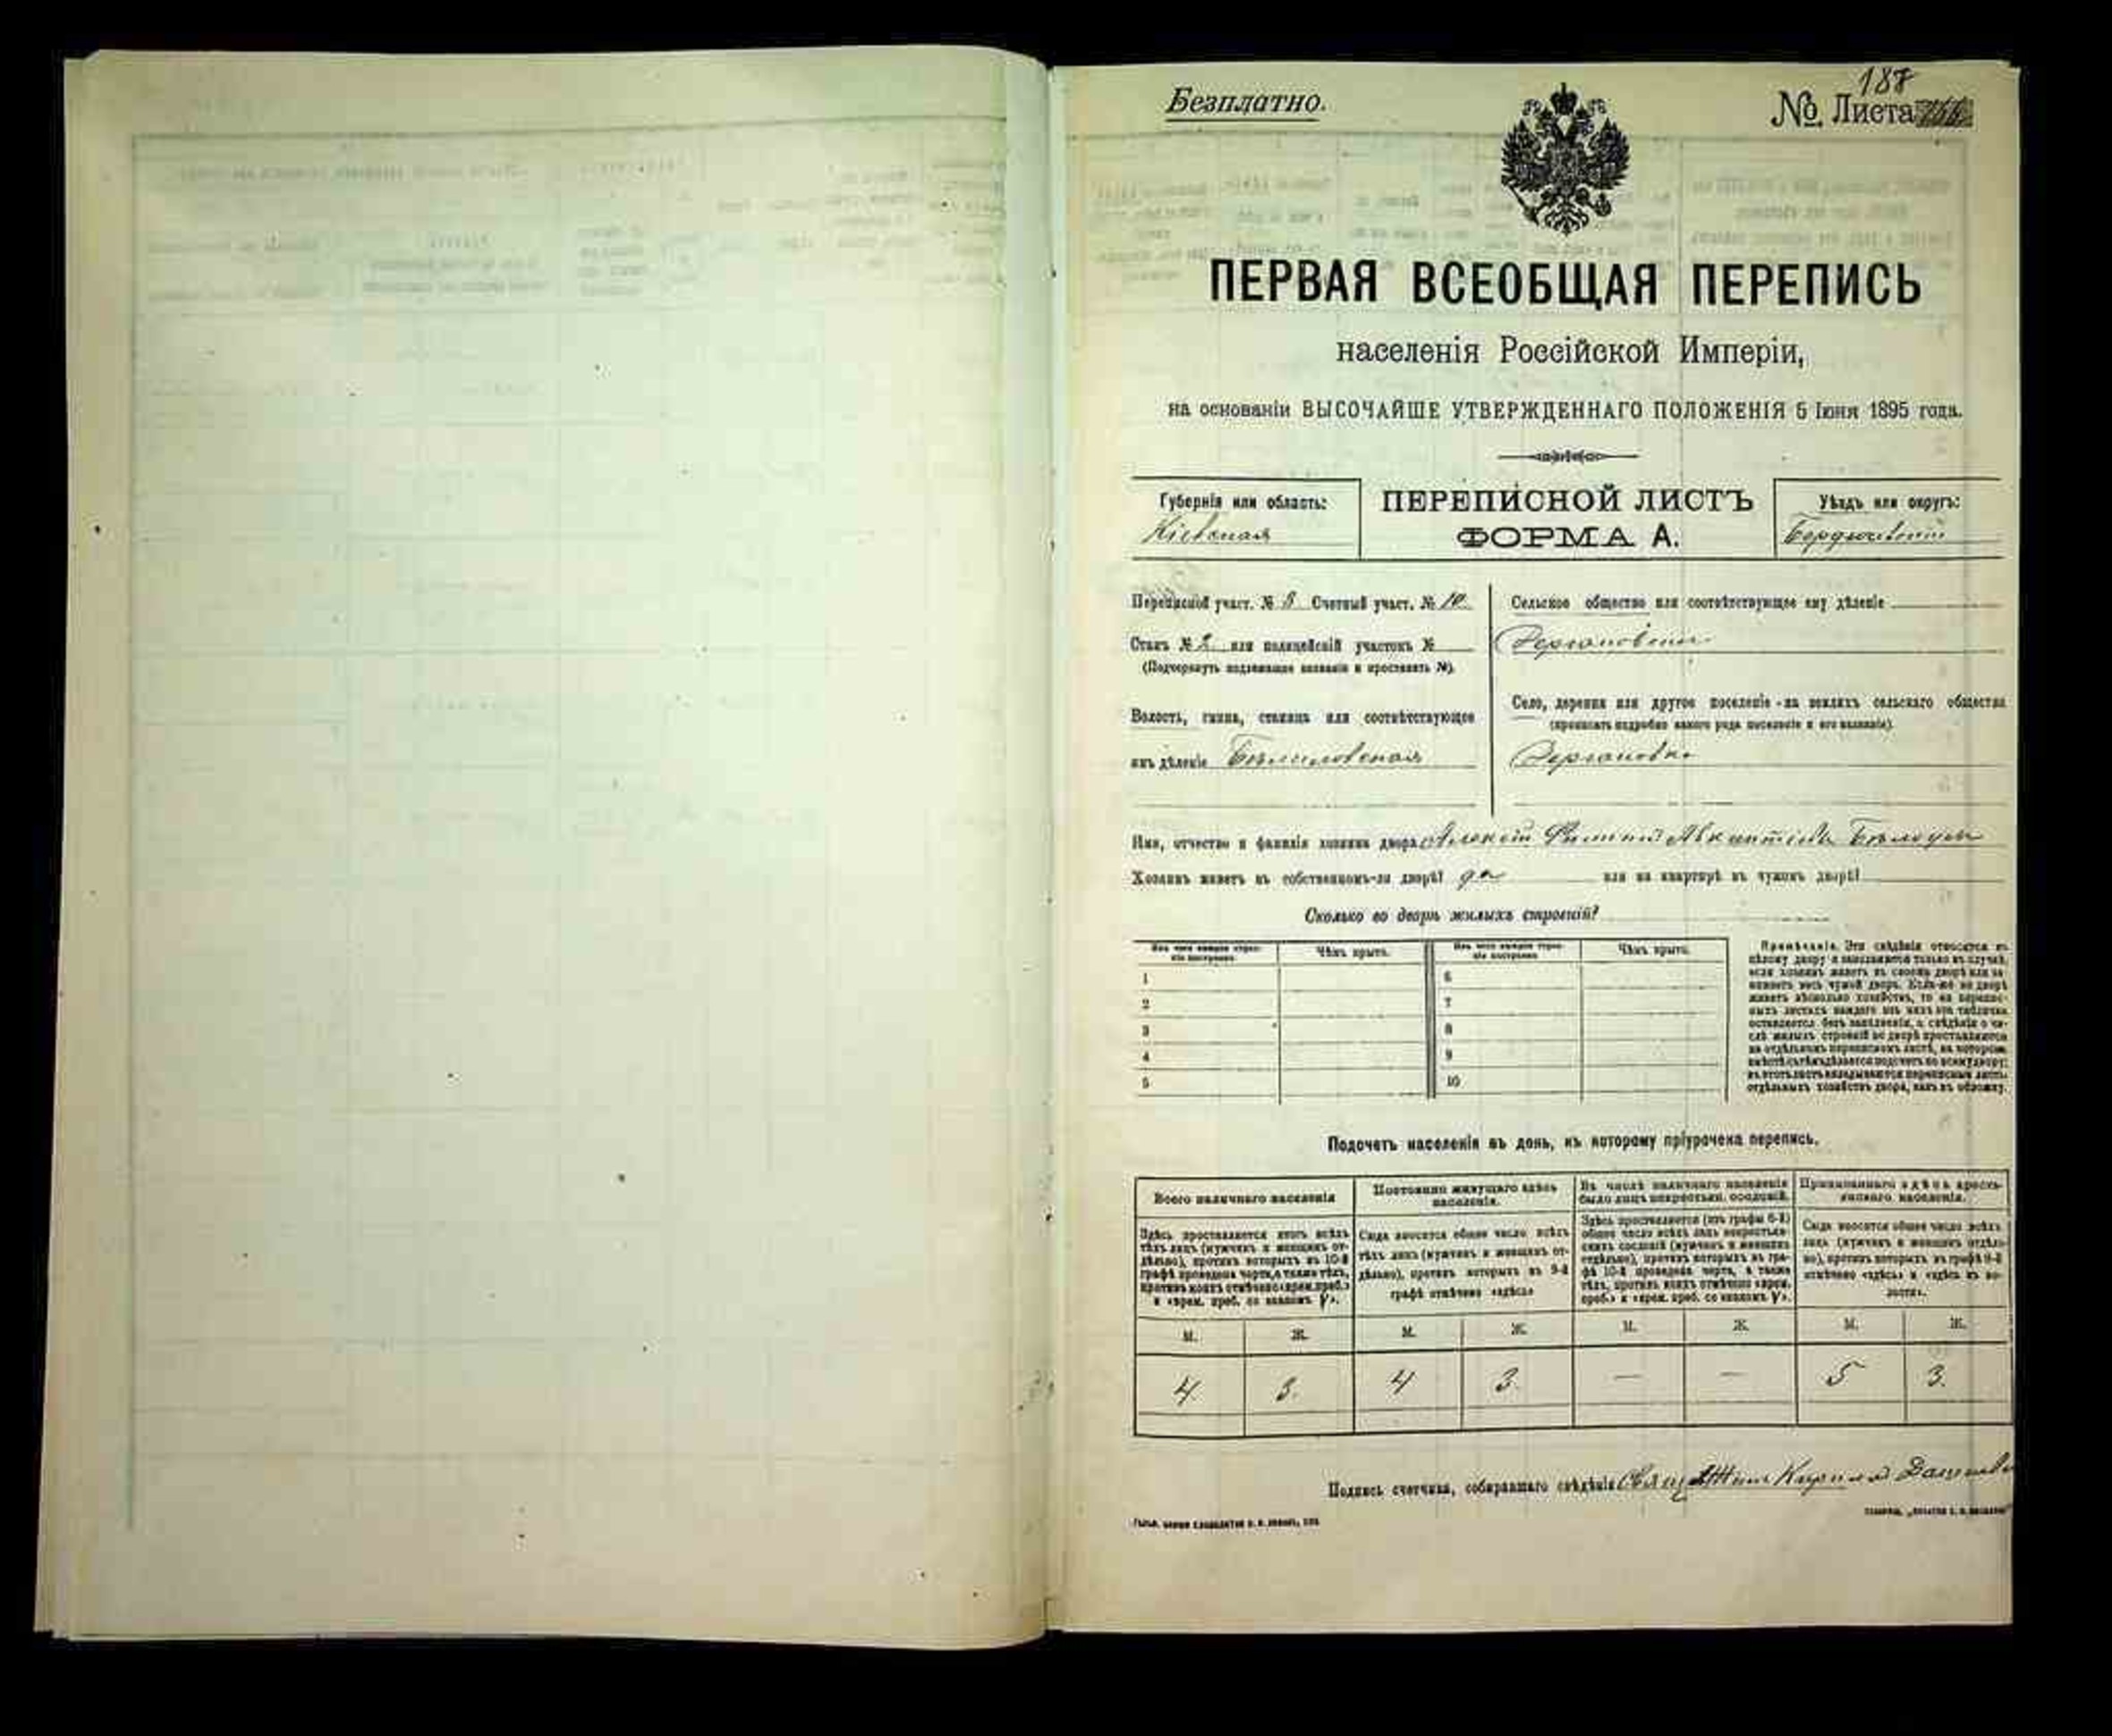 Безплатно.
188
№ Листа
ПЕРВАЯ ВСЕОБЩАЯ ПЕРЕПИСЬ
населенія Россійской Имперіи,
на основаніи ВЫСОЧАЙШЕ УТВЕРЖДЕННАГО ПОЛОЖЕНІЯ 5 Іюня 1895 года.
Губернія или область:
Кіевская
ПЕРЕПИСНОЙ ЛИСТЪ
ФОРМА А.
Уѣздъ или округъ:
Бердичевскій
Переписной участ. № 8 Счетный участ. № 10
Станъ № 2 или полицейскій участокъ №
(Подчеркнуть подлежащее названіе и проставить №).
Волость, гмина, станица или соотвѣтствующее
имъ дѣленіе Бѣлиловская
Сельское общество или соотвѣтствующее ему дѣленіе
Село, деревня или другое поселеніе на земляхъ сельскаго общества
(прописать подробно какого рода поселеніе и его названіе)
Имя, отчество и фамилія хозяина двора Алексѣй
Хозяинъ живетъ въ собственномъ-ли дворѣ? да или на квартирѣ въ чужомъ дворѣ?
Сколько во дворѣ жилыхъ строеній?
Изъ чего каждое строеніе построено.
Чѣмъ крыто.
Изъ чего каждое строеніе построено.
Чѣмъ крыто.
1 6
2 7
3 8
4 9
5 10
Примѣчаніе. Эти свѣдѣнія относятся къ
цѣлому двору и заполняются только въ случаѣ,
если хозяинъ живетъ въ своемъ дворѣ или за-
нимаетъ весь чужой дворъ. Если-же во дворѣ
живетъ нѣсколько хозяйствъ, то на перепис-
ныхъ листахъ каждаго изъ нихъ эта табличка
оставляется безъ заполненія, а свѣдѣнія о чи-
слѣ жилыхъ строеній во дворѣ проставляются
на отдѣльномъ переписномъ листѣ, на которомъ
вмѣстѣ съ тѣмъ дѣлается подсчетъ по всему двору;
въ этотъ листъ вкладываются переписные листы
отдѣльныхъ хозяйствъ двора, какъ въ обложку.
Подсчетъ населенія въ день, къ которому пріурочена перепись.
Всего наличнаго населенія
Здѣсь проставляется итогъ всѣхъ
тѣхъ лицъ (мужчинъ и женщинъ от-
дѣльно), противъ которыхъ въ 10-й
графѣ проведена черта, а также тѣхъ,
противъ коихъ отмѣчено «врем. преб.»
и «врем. преб. со знакомъ V».
Постоянно живущаго здѣсь
населенія.
Сюда вносится общее число всѣхъ
тѣхъ лицъ (мужчинъ и женщинъ от-
дѣльно), противъ которыхъ въ 9-й
графѣ отмѣчено «здѣсь»
Въ числѣ наличнаго населенія
было лицъ некрестьян. сословій.
Здѣсь проставляется (изъ графы 6-й)
общее число всѣхъ лицъ некрестьян-
скихъ сословій (мужчинъ и женщинъ
отдѣльно), противъ которыхъ въ гра-
фѣ 10-й проведена черта, а также
тѣхъ, противъ коихъ отмѣчено «врем.
преб.» и «врем. преб. со знакомъ V».
Приписаннаго здѣсь кресть-
янскаго населенія.
Сюда вносится общее число всѣхъ
лицъ (мужчинъ и женщинъ отдѣль-
но), противъ которыхъ въ графѣ 8-й
отмѣчено «здѣсь» и «здѣсь въ во-
лости».
М. Ж. М. Ж. М. Ж. М. Ж.
4 3 4 3 — — 5 3
Подпись счетчика, собиравшаго свѣдѣнія Кириллъ